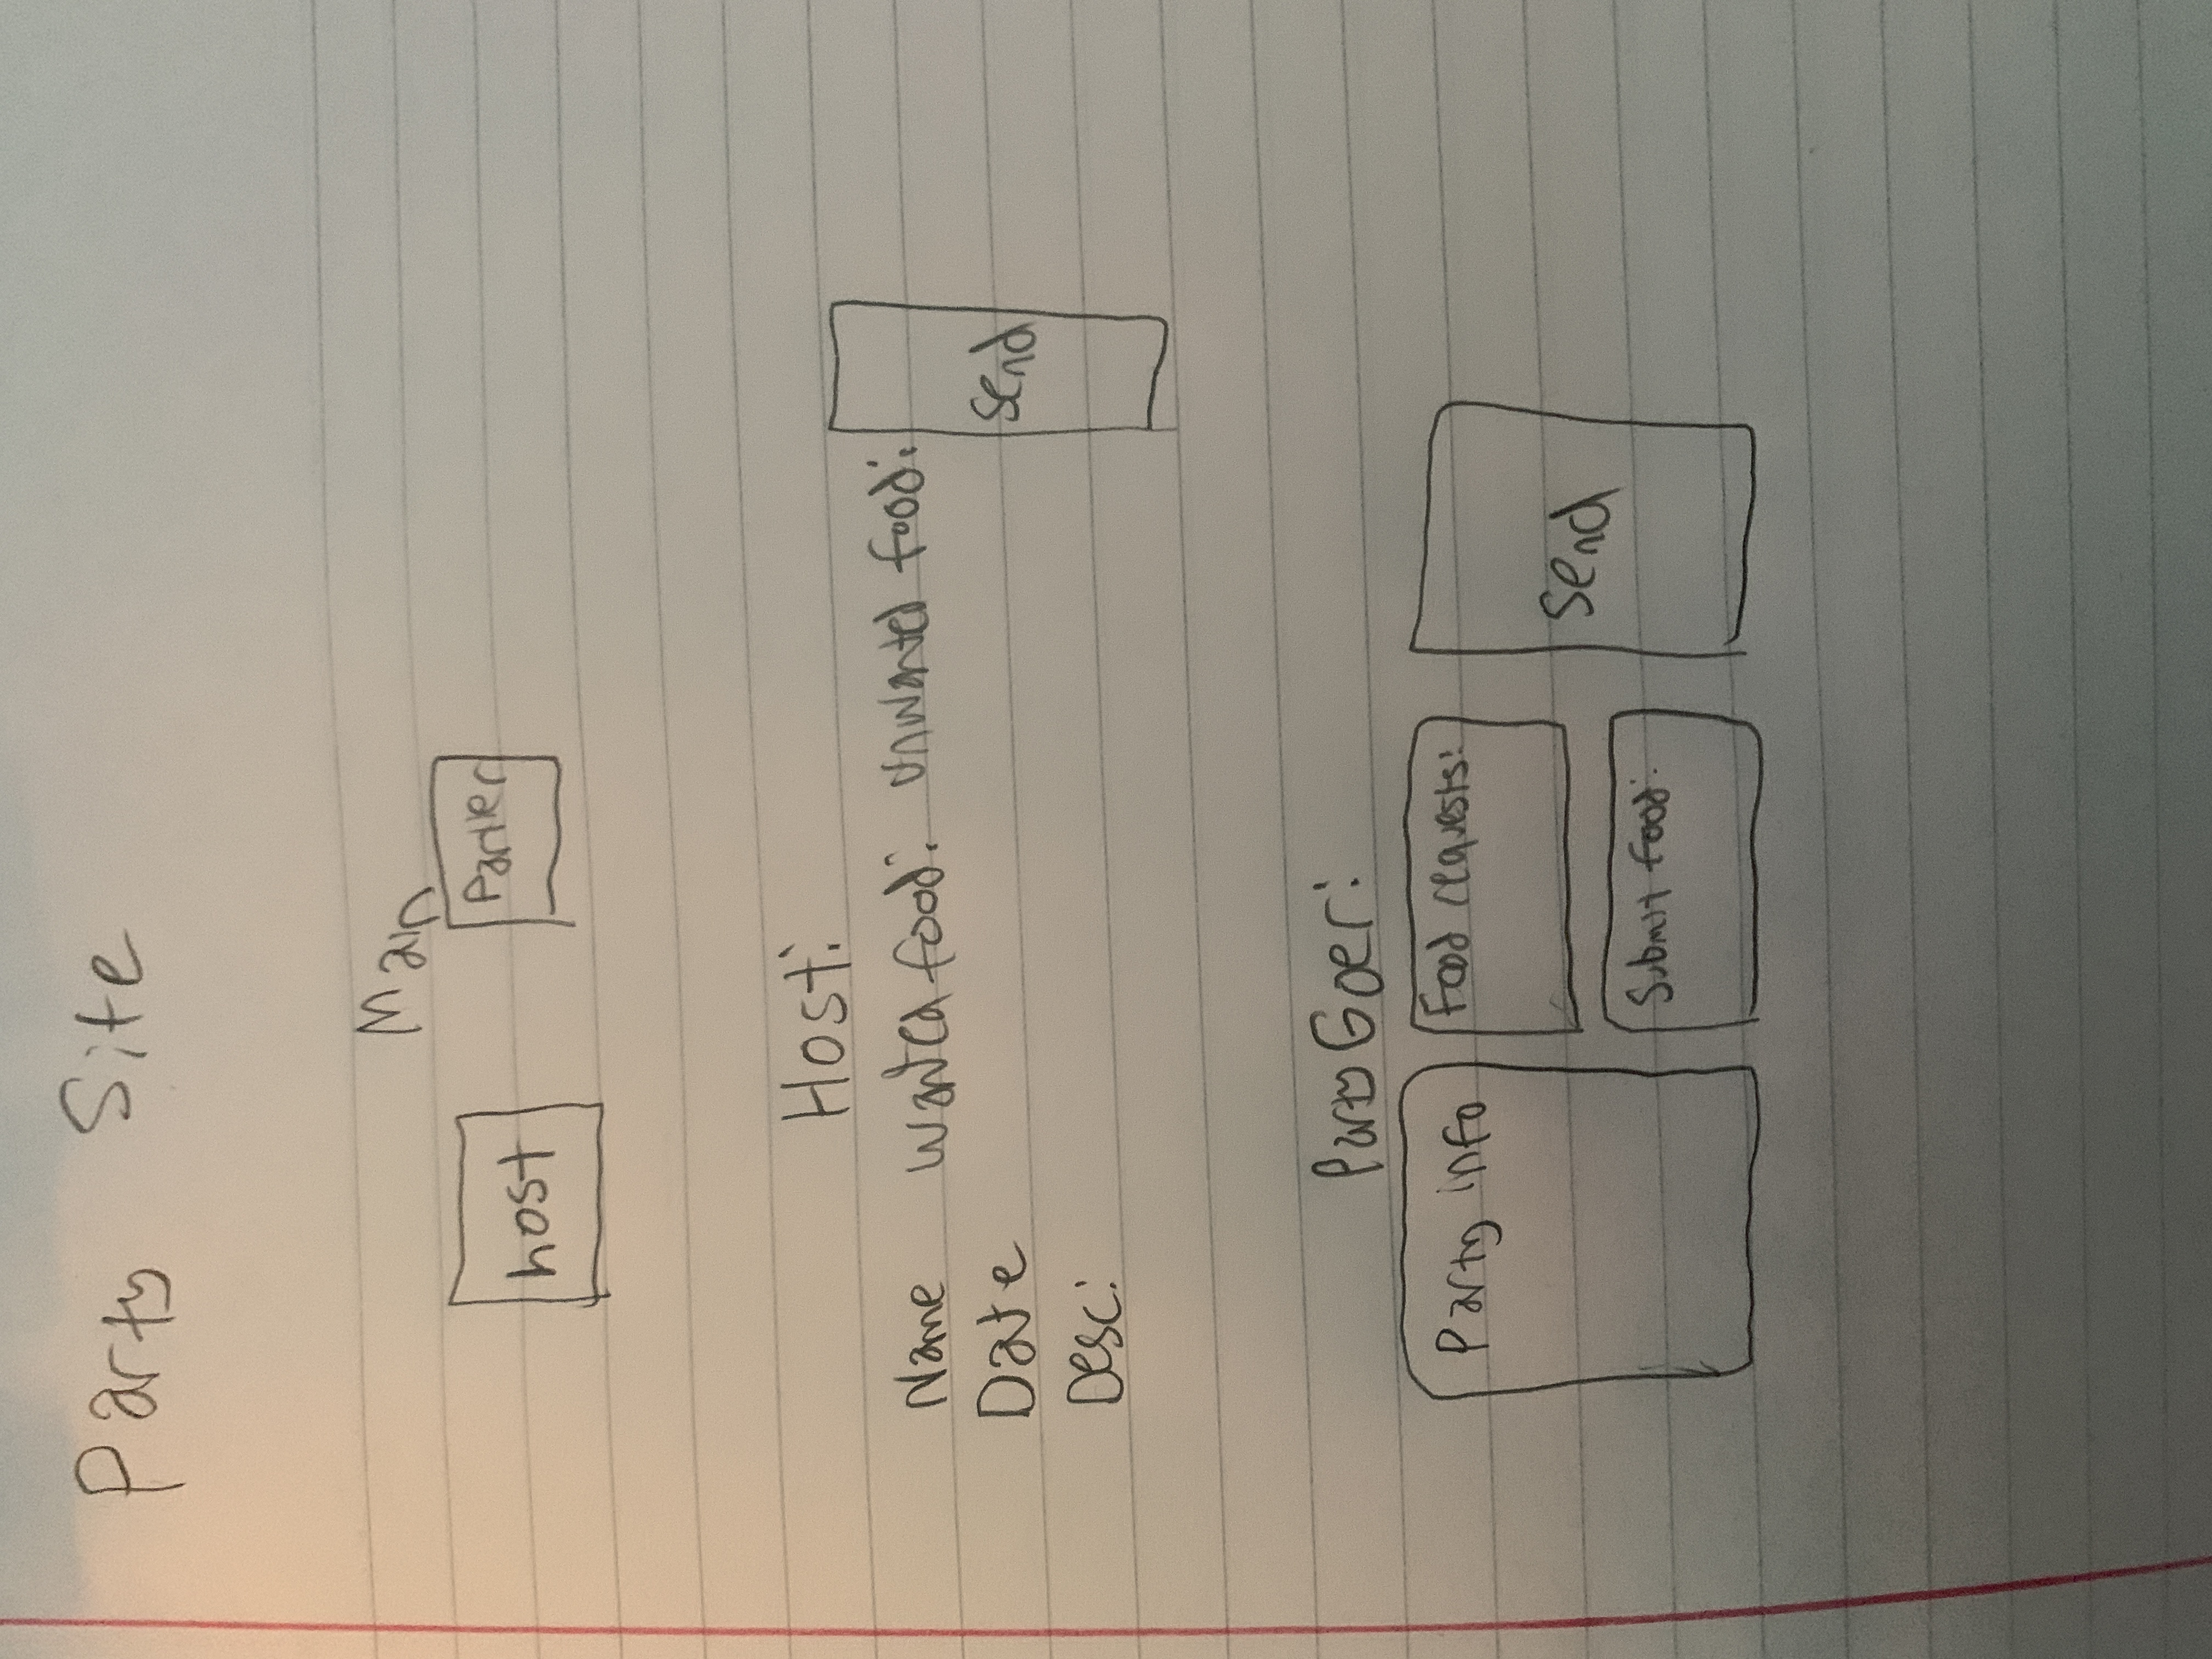 Party Site
Main
host
Partier
Host:
Name wanted food: unwanted food:
Date
Desc:
Send
Party Goer:
Party info
Food requests:
Submit food:
Send